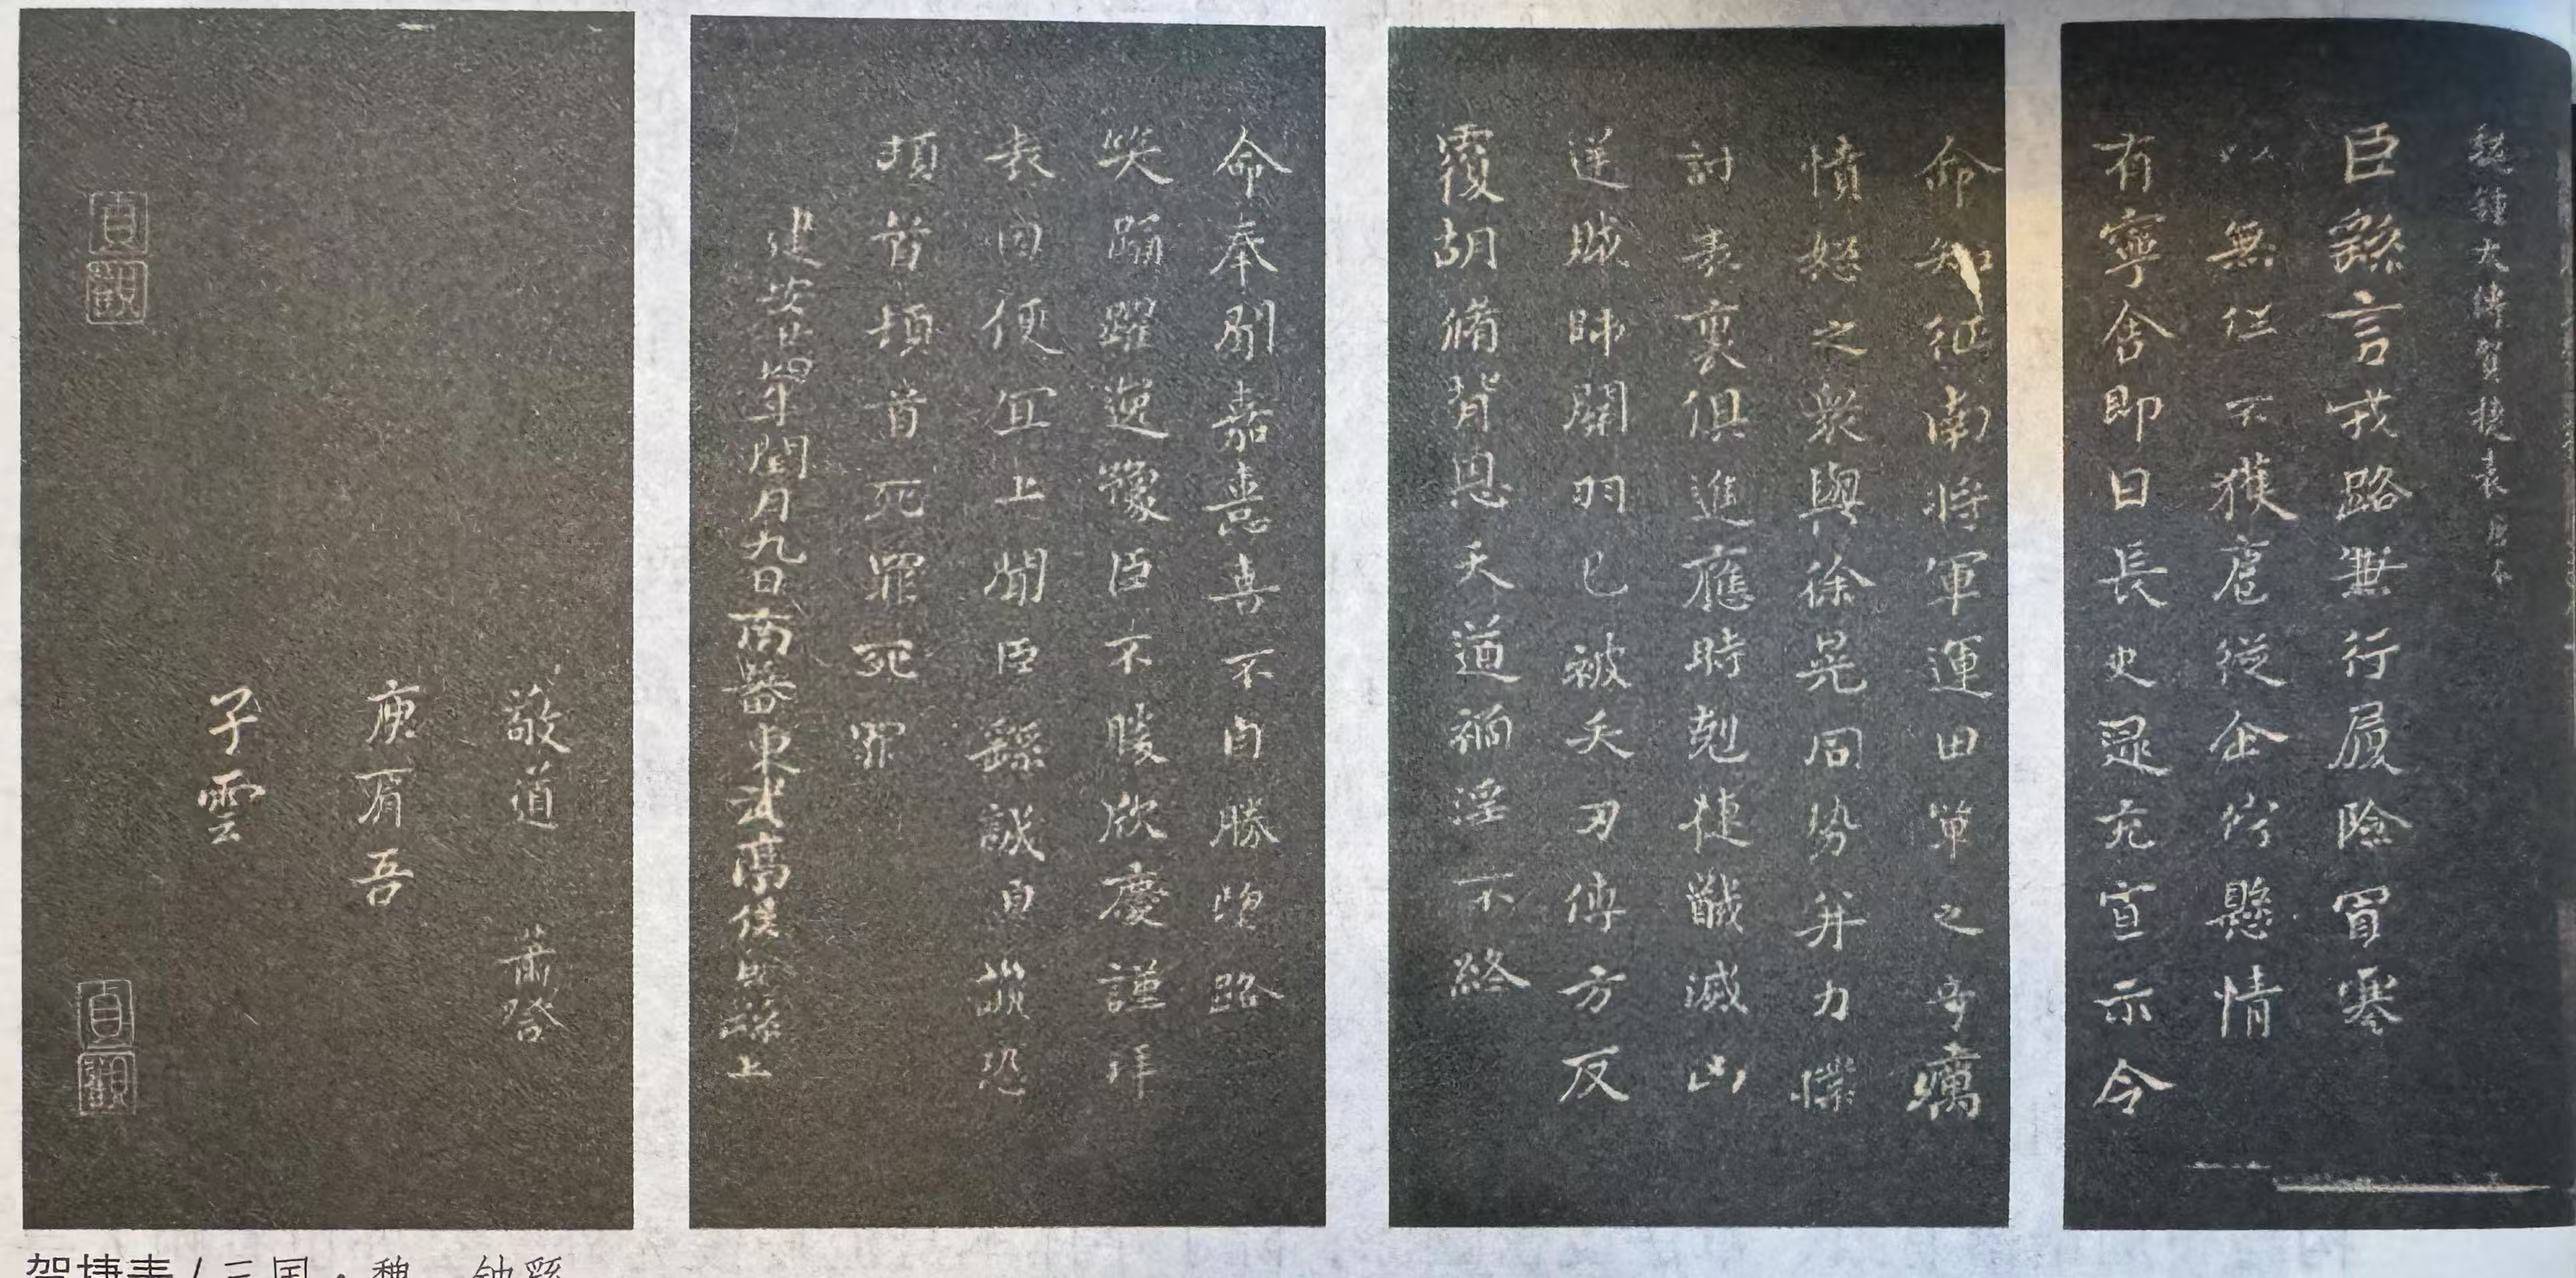 魏鍾太傅賀捷表 唐本
臣繇言戎路兼行履險冒寒
以無任不獲扈從企佇懸情
有寧舍即日長史逯充宣示令
命知征南將軍運田單之奇厲
憤怒之衆與徐晃同勢并力撲
討表裏俱進應時剋捷馘滅凶
逆賊帥關羽已被矢刃傅方反
覆胡脩背恩天道禍淫不終
命奉聞嘉憙喜不自勝望路
笑踊躍逸豫臣不勝欣慶謹拜
表因便宜上聞臣繇誠皇誠恐
頓首頓首死罪死罪
建安廿四年閏月九日南蕃東武亭侯臣繇上
敬道 蕭登
庾肩吾
子雲
貞觀
貞觀
贺捷表/三国·魏 钟繇